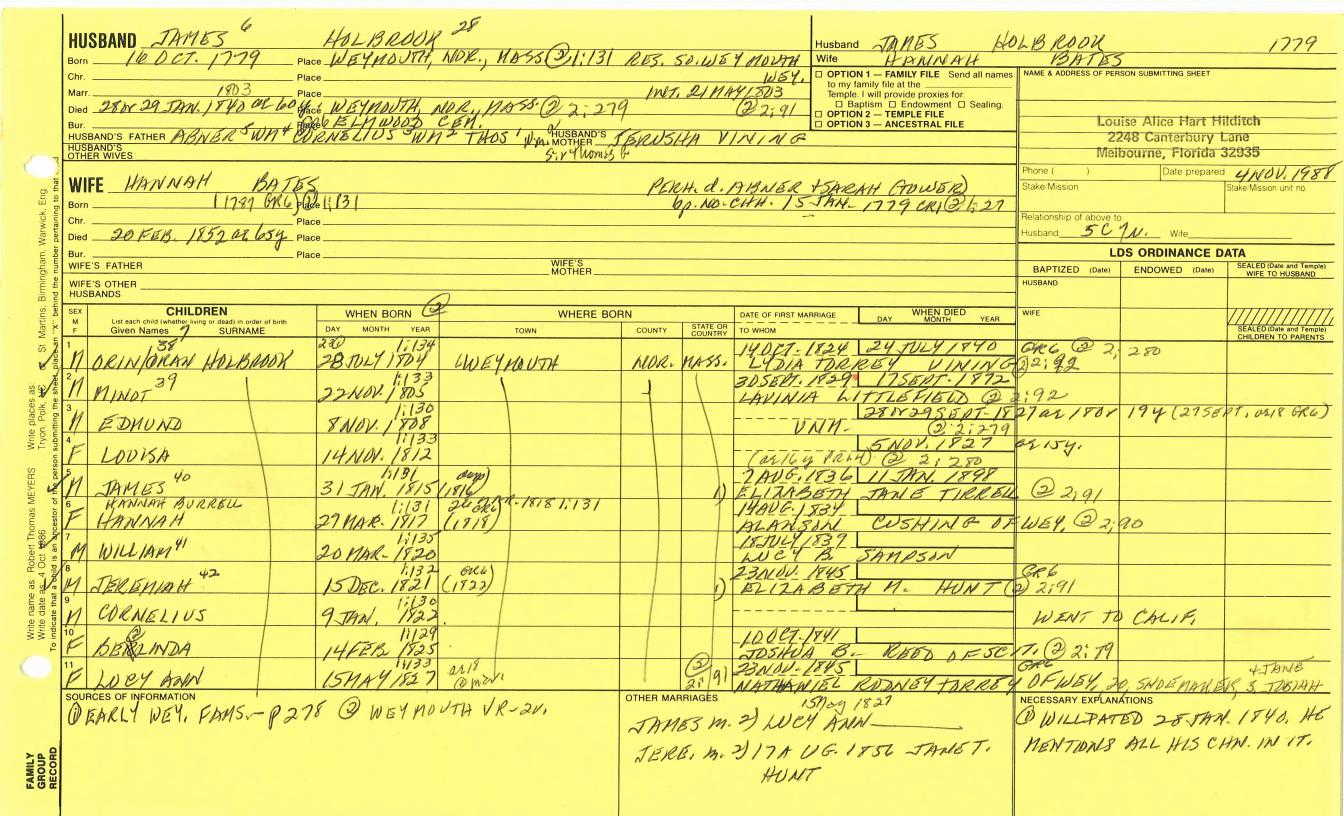 HUSBAND JAMES 6 HOLBROOK 28
Born 16 OCT. 1779 Place WEYMOUTH, NOR., MASS ② 1:131 RES. SO. WEYMOUTH
Chr. Place WEY.
Marr. 1803 Place INT. 21 MAY 1803
Died 28 or 29 JAN. 1840 ae 60y. Place WEYMOUTH, NOR., MASS. ② 2:279 ② 2:91
Bur. Place ELMWOOD CEM.
HUSBAND'S FATHER ABNER 5 WM 4 CORNELIUS 3 WM 2 THOS 1 HUSBAND'S MOTHER JERUSHA VINING
HUSBAND'S OTHER WIVES
WIFE HANNAH BATES PERH. d. ABNER + SARAH (TOWER)
Born (1787 GR6) Place ② 1:131 bp. NO. CHH. 15 JAN. 1779 CR1 ② 1:27
Chr. Place
Died 20 FEB. 1852 ae 65y Place
Bur. Place
WIFE'S FATHER WIFE'S MOTHER
WIFE'S OTHER HUSBANDS
Husband JAMES HOLBROOK 1779
Wife HANNAH BATES
☐ OPTION 1 — FAMILY FILE Send all names
to my family file at the
Temple. I will provide proxies for
☐ Baptism ☐ Endowment ☐ Sealing.
☐ OPTION 2 — TEMPLE FILE
☐ OPTION 3 — ANCESTRAL FILE
NAME & ADDRESS OF PERSON SUBMITTING SHEET
Louise Alice Hart Hilditch
2248 Canterbury Lane
Melbourne, Florida 32935
Phone ( ) Date prepared 4 NOV. 1988
Stake/Mission Stake/Mission unit no.
Relationship of above to
Husband 5C7N. Wife
LDS ORDINANCE DATA
BAPTIZED (Date) ENDOWED (Date) SEALED (Date and Temple) WIFE TO HUSBAND
HUSBAND
WIFE
SEALED (Date and Temple) CHILDREN TO PARENTS
SEX M F
CHILDREN
List each child (whether living or dead) in order of birth
Given Names 7 SURNAME
WHEN BORN ②
DAY MONTH YEAR
WHERE BORN
TOWN COUNTY STATE OR COUNTRY
DATE OF FIRST MARRIAGE
TO WHOM
WHEN DIED
DAY MONTH YEAR
1 38 1:134 14 OCT. 1824 24 JULY 1840 GR6 ② 2:280
M ORIN/ORAN HOLBROOK 28 JULY 1804 WEYMOUTH NOR. MASS. LYDIA TORREY VINING ② 2:92
2 39 1:133 30 SEPT. 1829 17 SEPT. 1872
M MINOT 22 NOV. 1805 LAVINIA LITTLEFIELD ② 2:92
3 1:130 28 or 29 SEPT. 1827 ae 18 or 19y (27 SEPT, ae 18 GR6)
M EDMUND 8 NOV. 1808 UNM. ② 2:279
4 1:133 5 NOV. 1827 ae 15y.
F LOUISA 14 NOV. 1812 ② 2:280
5 40 1:131 7 AUG. 1836 11 JAN. 1898
M JAMES 31 JAN. 1815 (1816) 1) ELIZABETH JANE TIRRELL ② 2:91
6 HANNAH BURRELL 1:131 1818 1:131 14 AUG. 1834
F HANNAH 27 MAR. 1817 (1818) ALANSON CUSHING OF WEY. ② 2:90
7 1:135 18 JULY 1839
M WILLIAM 41 20 MAR. 1820 LUCY B. SAMPSON
8 42 1:132 GR6) 23 NOV. 1845 GR6
M JEREMIAH 15 DEC. 1821 (1822) 1) ELIZABETH M. HUNT ② 2:91
9 1:130
M CORNELIUS 9 JAN. 1822 WENT TO CALIF.
10 ② 1:129 10 OCT. 1841
F BERLINDA 14 FEB 1825 JOSHUA B. REED OF SCIT. ② 2:79
11 1:133 ae 18 ② 2:91 23 NOV. 1845 GR6 + JANE
F LUCY ANN 15 MAY 1827 @ mar. NATHANIEL RODNEY TORREY OF WEY, 20, SHOEMAKER, S JOSIAH
15 May 1827
SOURCES OF INFORMATION
① EARLY WEY. FAMS.- p 278 ② WEYMOUTH VR-2v.
OTHER MARRIAGES
JAMES m. 2) LUCY ANN
JERE. m. 2) 17 AUG. 1856 JANE T.
HUNT
NECESSARY EXPLANATIONS
① WILL DATED 28 JAN. 1840. HE
MENTIONS ALL HIS CHN. IN IT.
Write name as: Robert Thomas MEYERS Write places as:
Write date as: 4 Oct 1986 Tryon, Polk, St. Martins, Birmingham, Warwick, Eng.
To indicate that a child is an ancestor of the person submitting the sheet, place an "X" behind the number pertaining to that
FAMILY
GROUP
RECORD